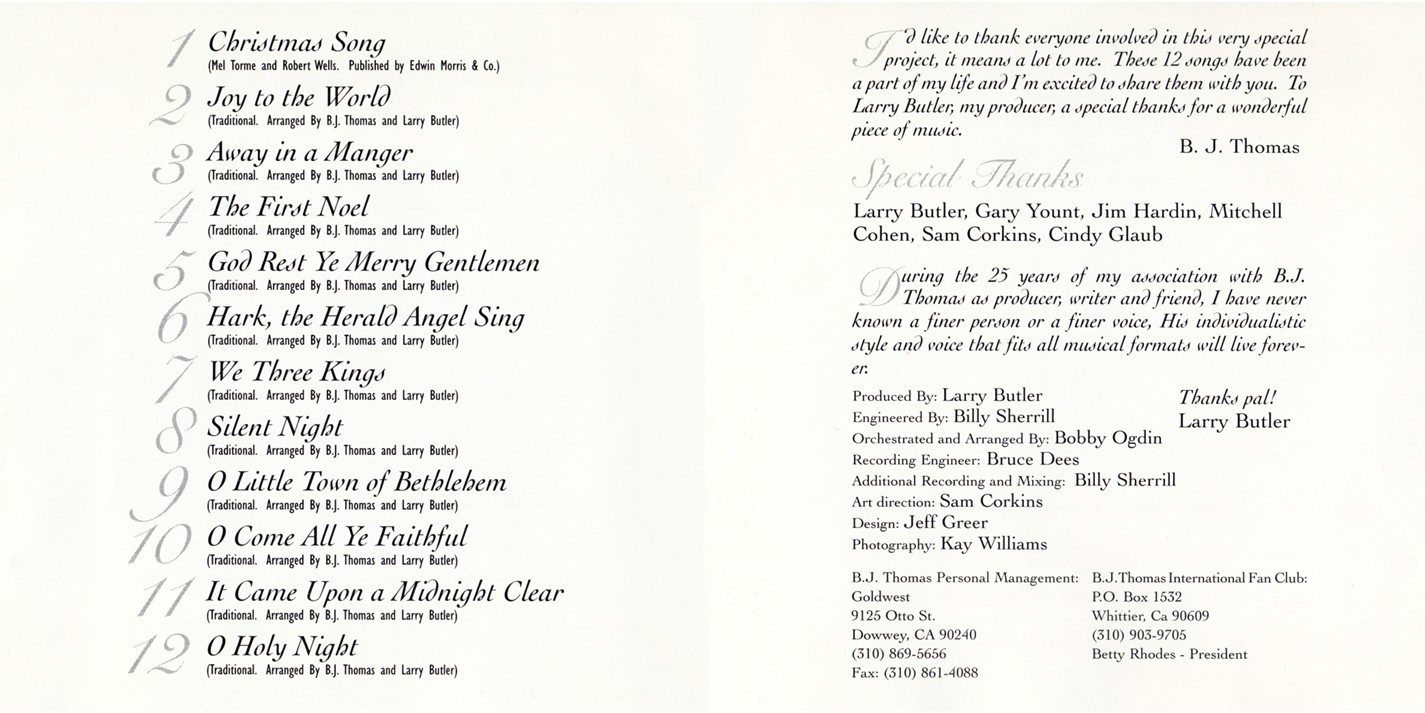 1 Christmas Song
(Mel Torme and Robert Wells. Published by Edwin Morris & Co.)
2 Joy to the World
(Traditional. Arranged By B.J. Thomas and Larry Butler)
3 Away in a Manger
(Traditional. Arranged By B.J. Thomas and Larry Butler)
4 The First Noel
(Traditional. Arranged By B.J. Thomas and Larry Butler)
5 God Rest Ye Merry Gentlemen
(Traditional. Arranged By B.J. Thomas and Larry Butler)
6 Hark, the Herald Angel Sing
(Traditional. Arranged By B.J. Thomas and Larry Butler)
7 We Three Kings
(Traditional. Arranged By B.J. Thomas and Larry Butler)
8 Silent Night
(Traditional. Arranged By B.J. Thomas and Larry Butler)
9 O Little Town of Bethlehem
(Traditional. Arranged By B.J. Thomas and Larry Butler)
10 O Come All Ye Faithful
(Traditional. Arranged By B.J. Thomas and Larry Butler)
11 It Came Upon a Midnight Clear
(Traditional. Arranged By B.J. Thomas and Larry Butler)
12 O Holy Night
(Traditional. Arranged By B.J. Thomas and Larry Butler)
I'd like to thank everyone involved in this very special
project, it means a lot to me. These 12 songs have been
a part of my life and I'm excited to share them with you. To
Larry Butler, my producer, a special thanks for a wonderful
piece of music.
B. J. Thomas
Special Thanks
Larry Butler, Gary Yount, Jim Hardin, Mitchell
Cohen, Sam Corkins, Cindy Glaub
During the 25 years of my association with B.J.
Thomas as producer, writer and friend, I have never
known a finer person or a finer voice, His individualistic
style and voice that fits all musical formats will live forev-
er.
Thanks pal!
Larry Butler
Produced By: Larry Butler
Engineered By: Billy Sherrill
Orchestrated and Arranged By: Bobby Ogdin
Recording Engineer: Bruce Dees
Additional Recording and Mixing: Billy Sherrill
Art direction: Sam Corkins
Design: Jeff Greer
Photography: Kay Williams
B.J. Thomas Personal Management:
Goldwest
9125 Otto St.
Dowwey, CA 90240
(310) 869-5656
Fax: (310) 861-4088
B.J.Thomas International Fan Club:
P.O. Box 1532
Whittier, Ca 90609
(310) 903-9705
Betty Rhodes - President